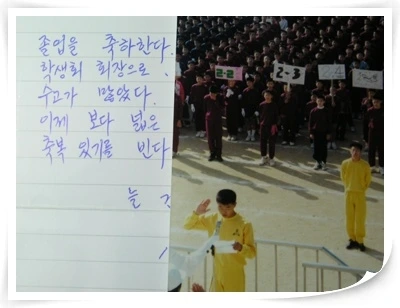 졸업을 축하한다.
학생회 회장으로
수고가 많았다.
이제 보다 넓은
축복 있기를 빈다
늘
2-2
2-3